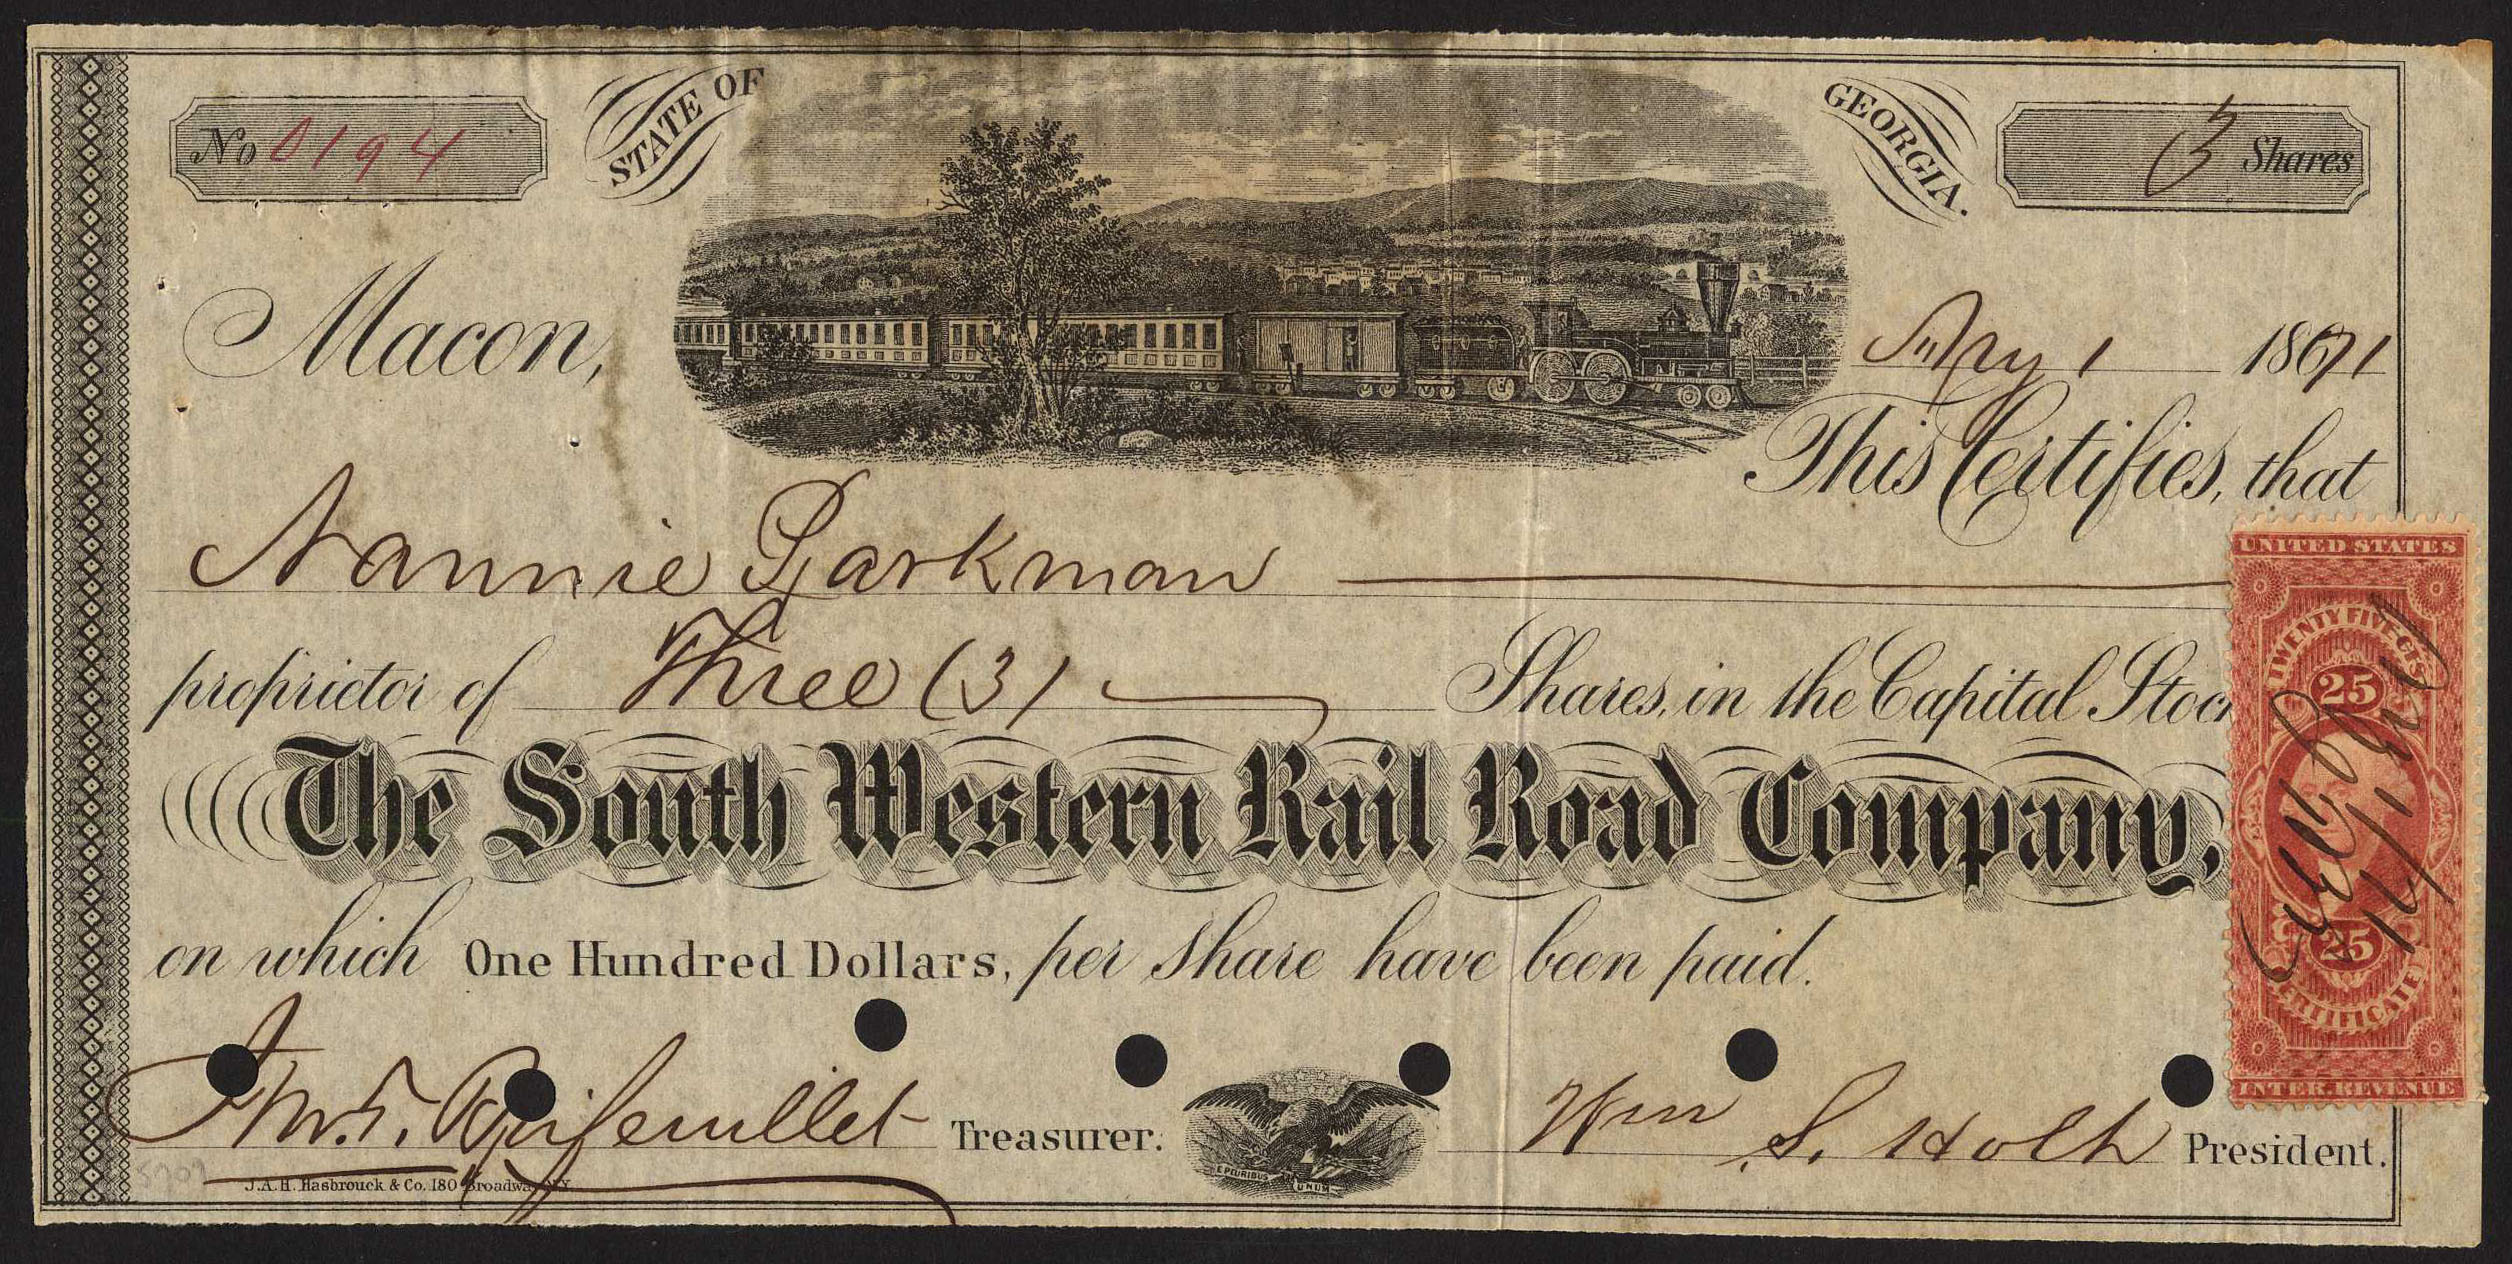 No 0194
STATE OF GEORGIA.
3 Shares
Macon, May 1 1871
This Certifies, that
Nannie Parkman
proprietor of Three (3) Shares, in the Capital Stoc
The South Western Rail Road Company,
on which One Hundred Dollars, per share have been paid.
Treasurer.
E PLURIBUS UNUM
Wm S. Holt President.
J.A.H. Hasbrouck & Co. 180 Broadway NY
UNITED STATES
TWENTY FIVE CTS
25
25
CERTIFICATE
INTER. REVENUE